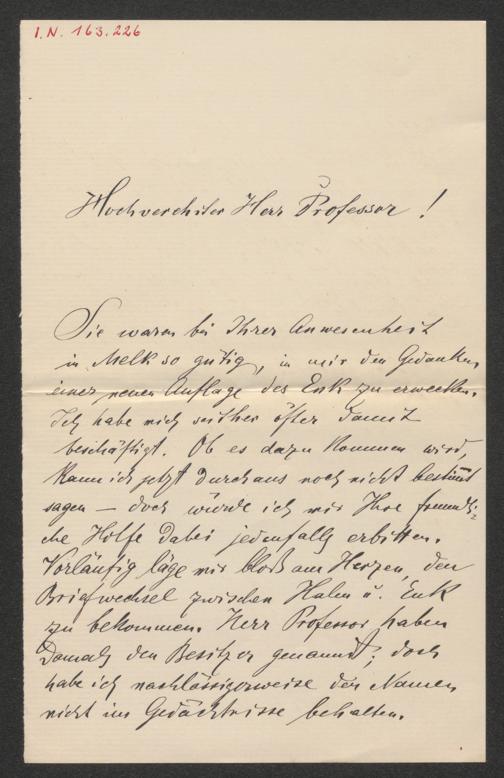 I.N. 163.226
Hochverehrter Herr Professor!
Sie waren bei Ihrer Anwesenheit
in Melk so gütig, in mir den Gedanken
einer neuen Auflage des Enk zu erwecken.
Ich habe mich seither öfter damit
beschäftigt. Ob es dazu kommen wird,
kann ich jetzt durchaus noch nicht bestimmt
sagen – doch würde ich mir Ihre freundli-
che Hilfe dabei jedenfalls erbitten.
Vorläufig läge mir bloß am Herzen, den
Briefwechsel zwischen Halm u. Enk
zu bekommen. Herr Professor haben
damals den Besitzer genannt; doch
habe ich nachlässigerweise den Namen
nicht im Gedächtnisse behalten.